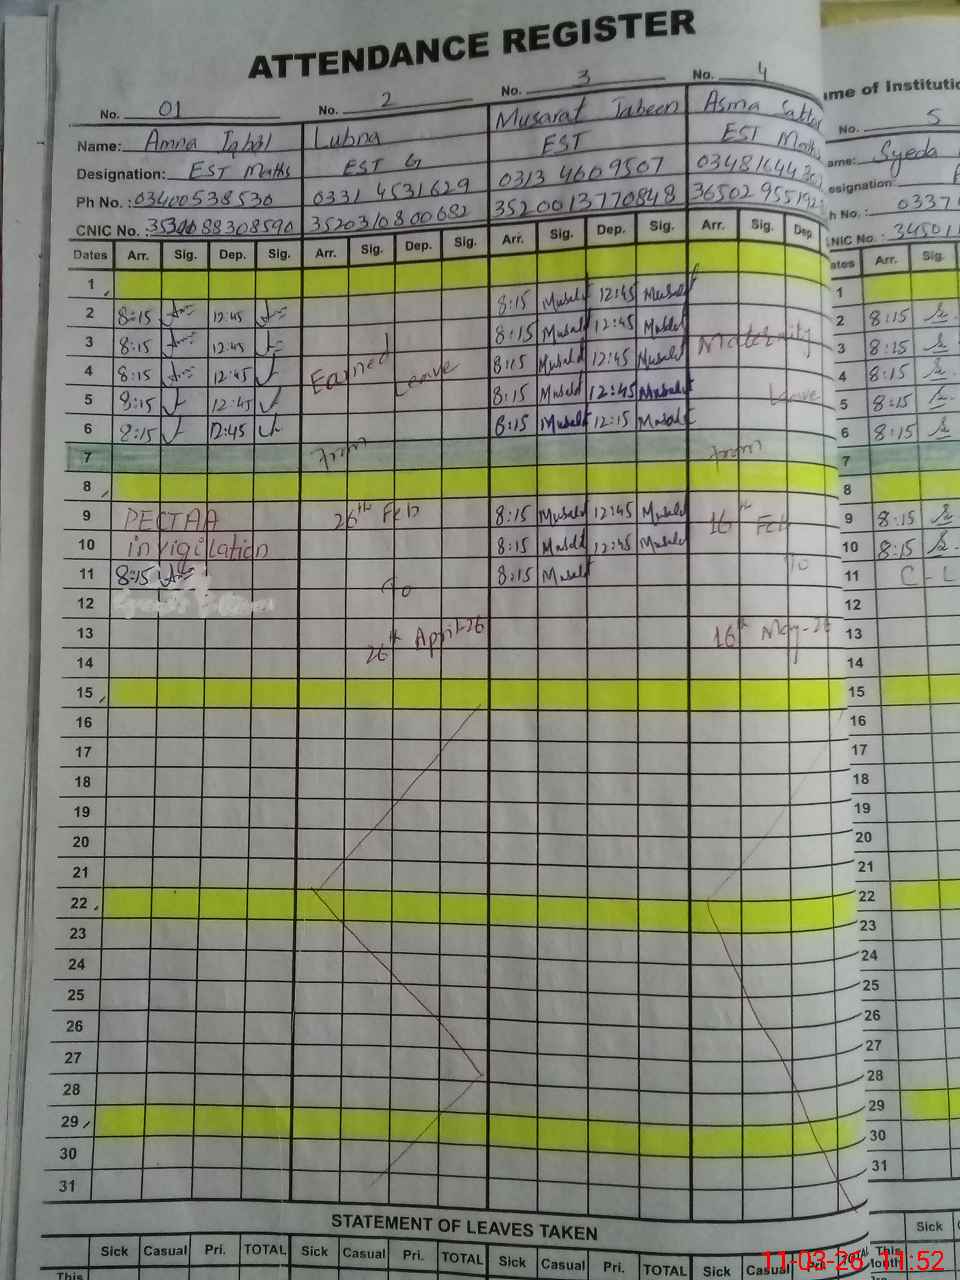 ATTENDANCE REGISTER
No. 01 No. 2 No. 3 No. 4
Name: Amna Iqbal Lubna Musarat Jabeen Asma
Designation: EST Maths EST G EST EST Maths
Ph No.: 03400538530 0331 4531629 0313 4609507
CNIC No.: 3520310800682 3520013770848
Dates Arr. Sig. Dep. Sig. Arr. Sig. Dep. Sig. Arr. Sig. Dep. Sig. Arr. Sig. Dep
1
2 8:15 12:45 8:15 12:45
3 8:15 12:45 8:15 12:45 Maternity
4 8:15 12:45 Earned Leave 8:15 12:45
5 8:15 12:45 8:15 12:45 Leave
6 8:15 12:45 8:15 12:15
7 From From
8
9 PECTAA 26th Feb 8:15 12:45 16th Feb
10 invigilation 8:15 12:45
11 8:15 8:15 To
12 To
13 26th April-26 16th May-26
14
15
16
17
18
19
20
21
22
23
24
25
26
27
28
29
30
31
STATEMENT OF LEAVES TAKEN
Sick Casual Pri. TOTAL Sick Casual Pri. TOTAL Sick Casual Pri. TOTAL Sick Casual Pri. TOTAL
This
me of Institutio
No. 5
ame: Syeda
esignation:
h No.: 0337
NIC No.: 34501
ates Arr. Sig.
1
2 8:15
3 8:15
4 8:15
5 8:15
6 8:15
7
8
9 8:15
10 8:15
11 C-L
12
13
14
15
16
17
18
19
20
21
22
23
24
25
26
27
28
29
30
31
Sick
This
Month
11-03-26 11:52